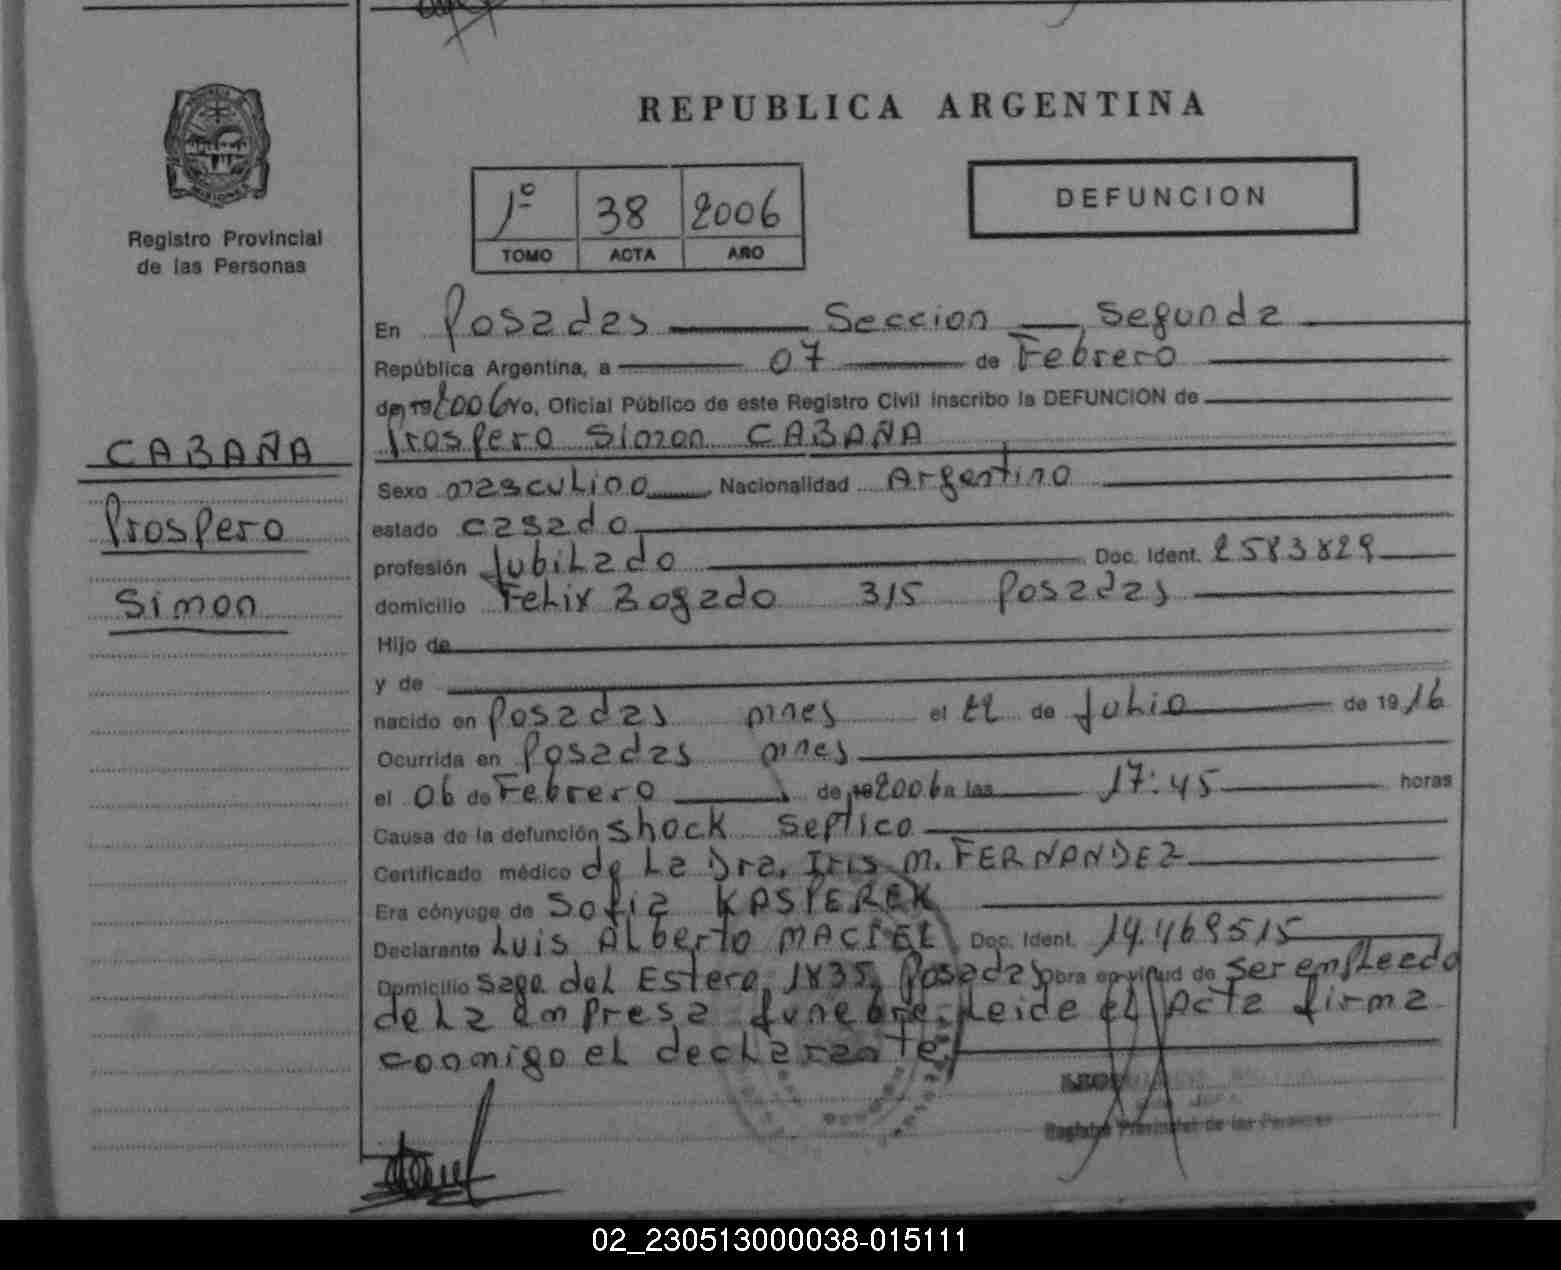 REPUBLICA ARGENTINA
Registro Provincial
de las Personas
1º 38 2006
TOMO ACTA AÑO
DEFUNCION
CABAÑA
Prospero
Simon
En Posadas Seccion Segunda
República Argentina, a 07 de Febrero
de 19 2006 Yo, Oficial Público de este Registro Civil inscribo la DEFUNCION de
Prospero Simon CABAÑA
Sexo masculino Nacionalidad Argentino
estado casado
profesión Jubilado Doc. Ident. 2583829
domicilio Felix Bogado 315 Posadas
Hijo de
y de
nacido en Posadas mnes el 22 de Julio de 1916
Ocurrida en Posadas mnes
el 06 de Febrero de 19 2006 a las 17:45 horas
Causa de la defunción shock septico
Certificado médico de La Dra. Iris M. FERNANDEZ
Era cónyuge de Sofia KASPEREK
Declarante Luis Alberto MACIEL Doc. Ident. 14.469515
Domicilio Sgo. del Estero 1835, Posadas Obra en virtud de ser empleado
de la empresa funebre. Leida el Acta firma
conmigo el declarante
Registro Provincial de las Personas
02_230513000038-015111